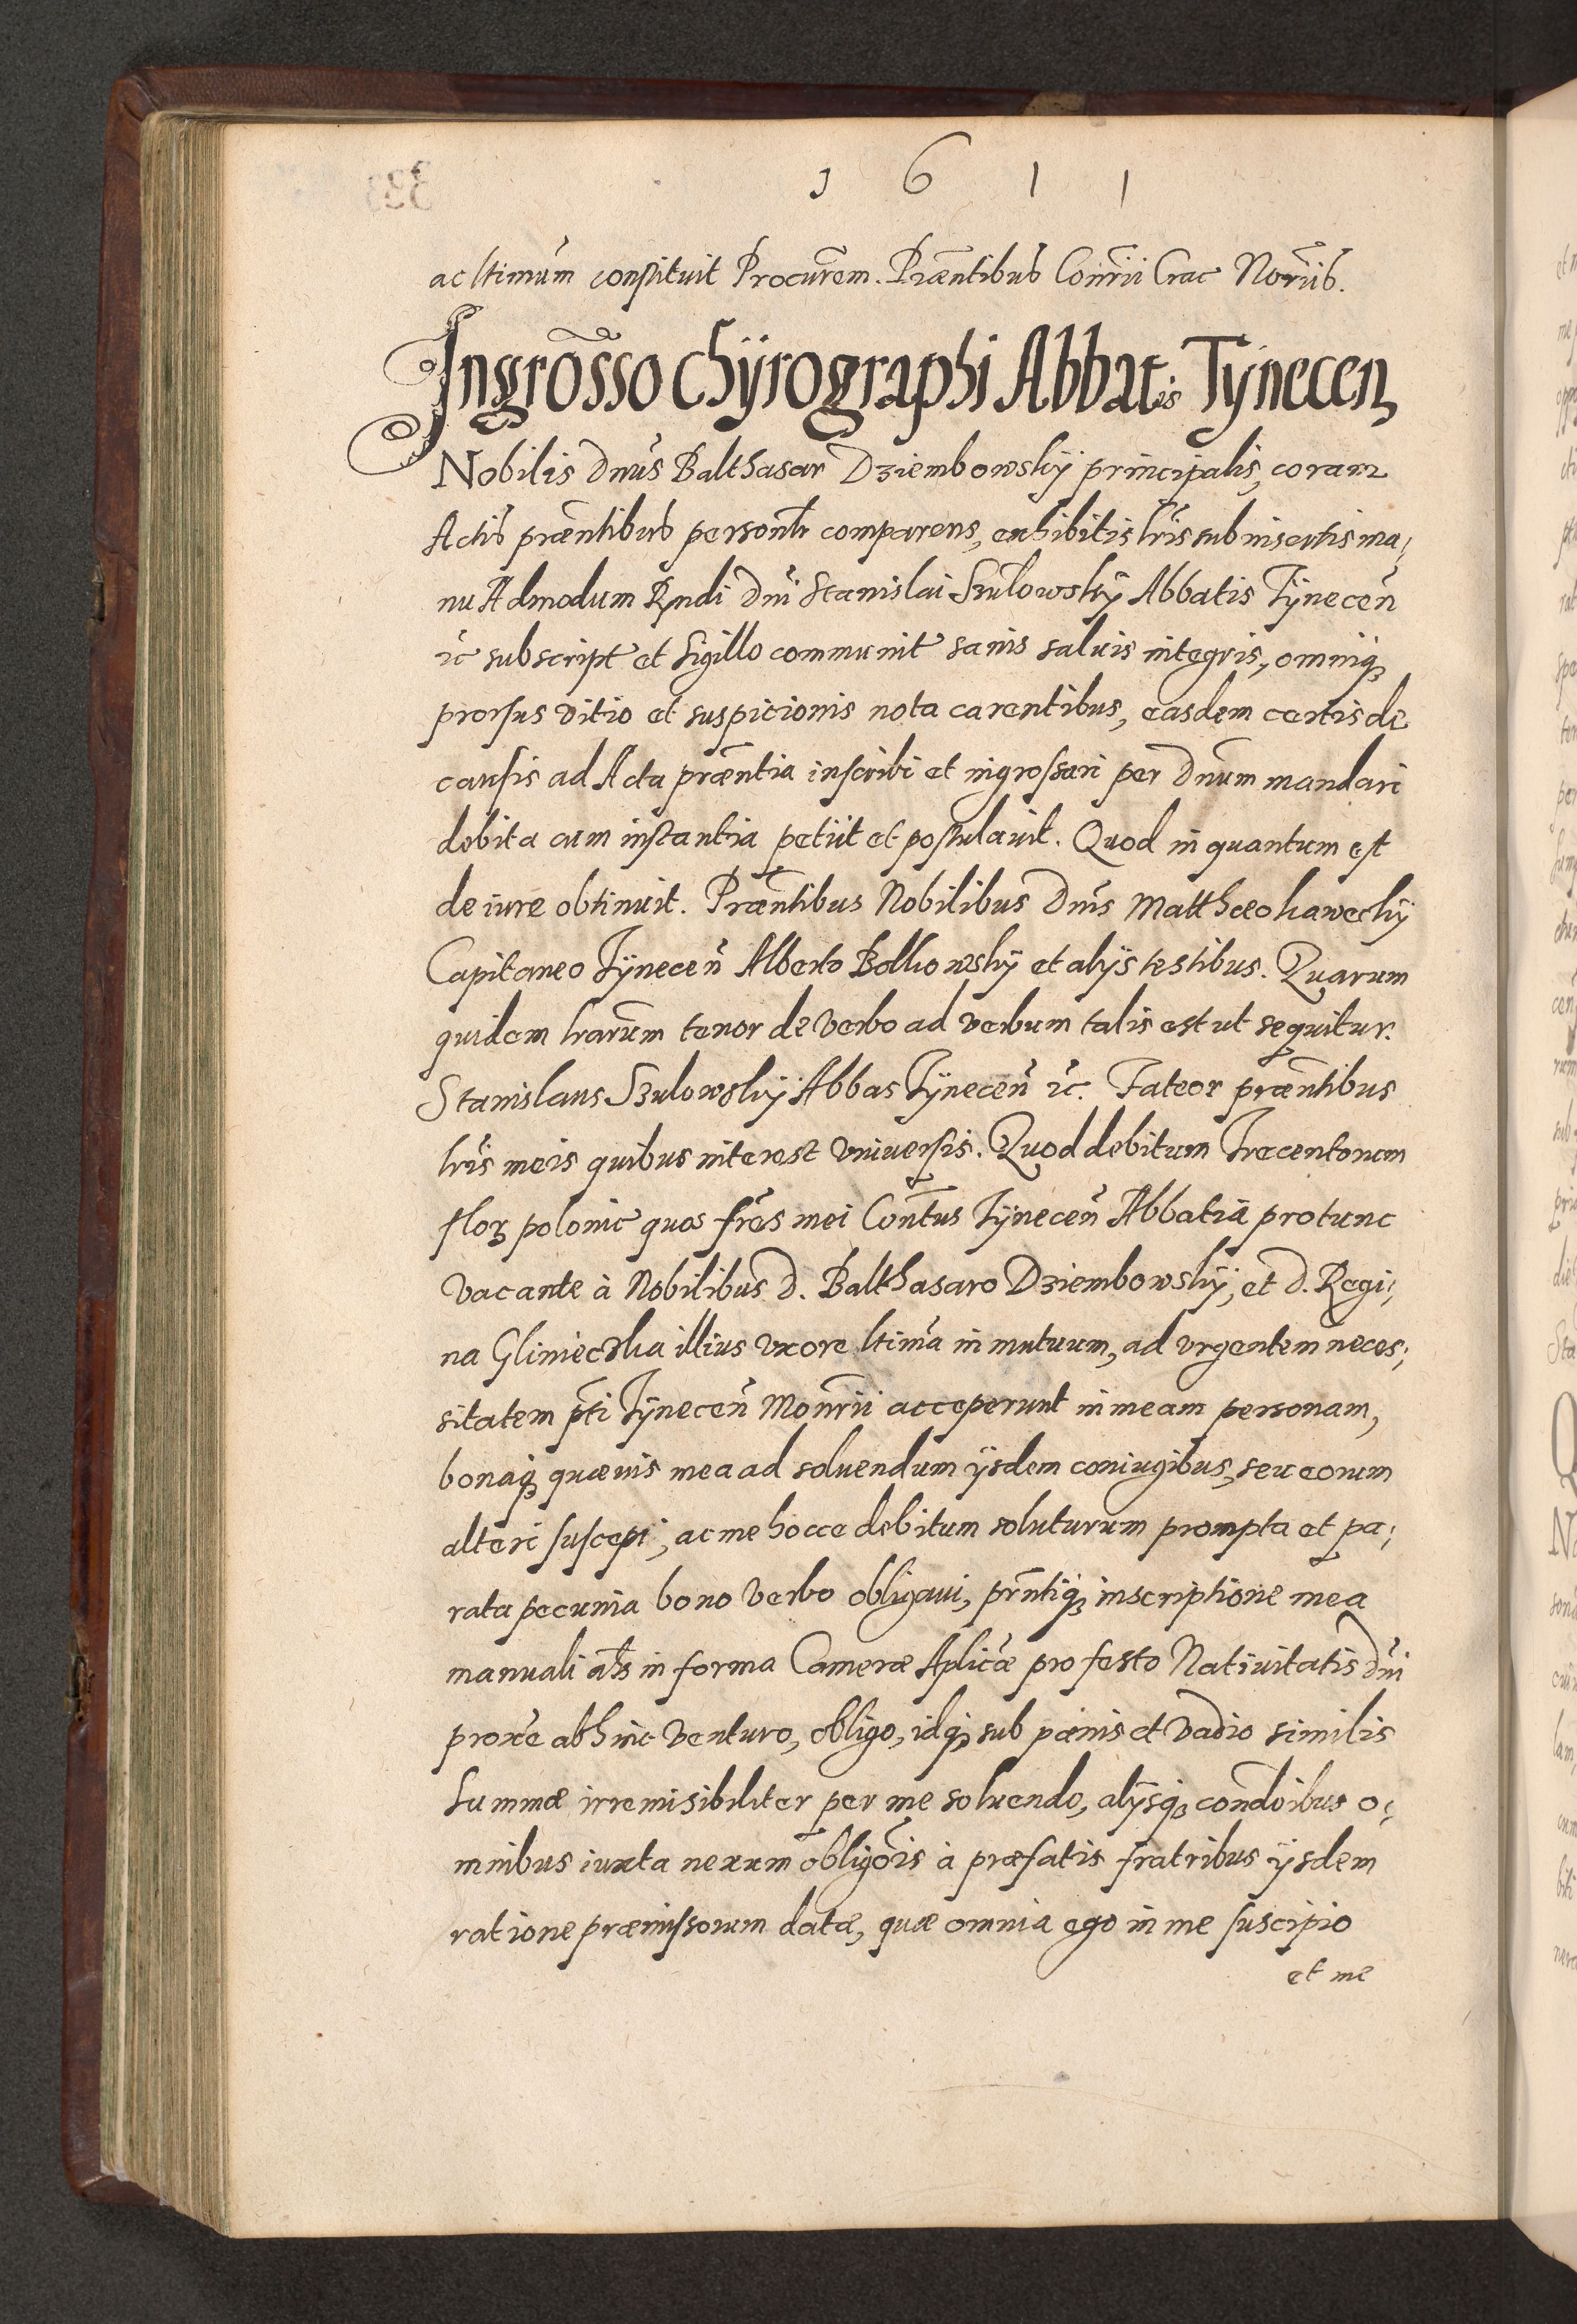 1 6 1 1
ac ltimum constituit Procurem. Præntibus Conrii Crac Noriis.
Ingrosso Chÿrographi Abbatis Tÿnecen
Nobilis Dnus Balthasar Dziembowskÿ principalis, coram
Actis præntibus personlr comparens, exhibitis lris subinsertis ma,
nu Admodum Rndi Dni Stanislai Szulowskÿ Abbatis Tÿnecen
ic subscript et Sigillo communit sanis saluis integris, omniq
prorsus vitio et suspicionis nota carentibus, easdem certis de
causis ad Acta præntia inscribi et ingrossari per Dnum mandari
debita cum instantia petiit et postulauit. Quod in quantum est
de iure obtinuit. Præntibus Nobilibus Dnis Matthæo kaweckÿ
Capitaneo Tÿnecen Alberto Bolkowskÿ et alÿs testibus. Quarum
quidem lrarum tenor de verbo ad verbum talis est ut sequitur.
Stanislaus Szulowskÿ Abbas Tÿnecen ic. Fateor præntibus
lris meis quibus interest vniuersis. Quod debitum Trecentorum
flor polonic quos fres mei Contus Tÿnecen Abbatia protunc
vacante à Nobilibus D. Balthasaro Dziembowskÿ, et D. Regi,
na Glinieczka illius vxore ltima in mutuum, ad vrgentem neces,
sitatem pti Tÿnecen Monrii acceperunt in meam personam,
bonaq quæuis mea ad soluendum ÿsdem coniugibus, seu eorum
alteri suscepi, ac me hocce debitum soluturum prompta et pa,
rata pecunia bono verbo obligaui, prntiq inscriptione mea
manuali als in forma Cameræ Aplicæ pro festo Natiuitatis Dni
proxe abhinc venturo, obligo, idq sub pænis et vadio similis
Summæ irremisibiliter per me soluendo, alÿsq condoibus o,
mnibus iuxta nexum obligois à præfatis fratribus ÿsdem
ratione præmissorum datæ, quæ omnia ego in me suscipio
et me